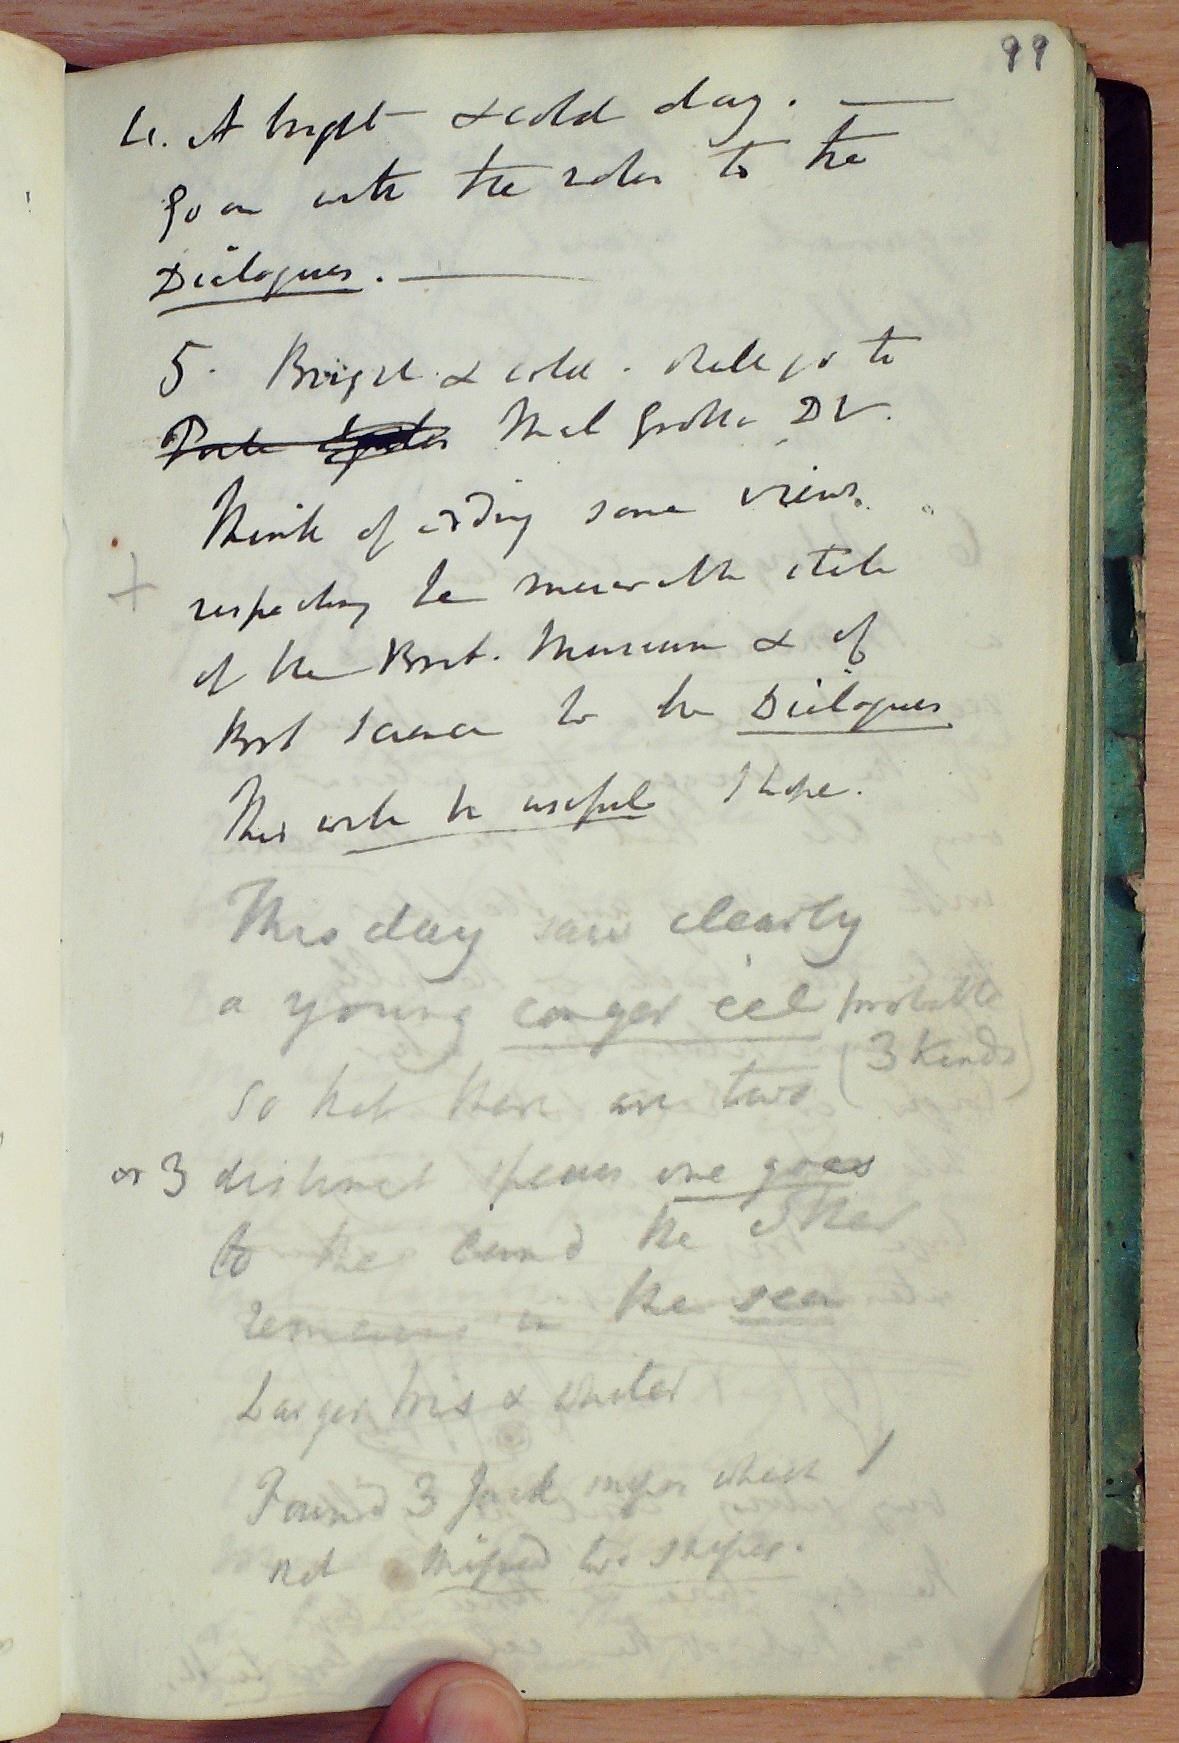 99
4. A bright & cold day. —
Go on with the notes to the
Dialogues. —
5. Bright & cold. shall go to
Mal Grotta DV.
Think of adding some views
+ respecting the miserable state
of the Brit. Museum & of
Brit Science to the Dialogues
This will be useful I hope.
This day saw clearly
a young conger eel probable
(3 kinds)
So that there are two
or 3 distinct species one goes
to the the other
remains in the sea
Larger Iris & whiter
Found 3 Jack snipes which I
not missed two snipes.